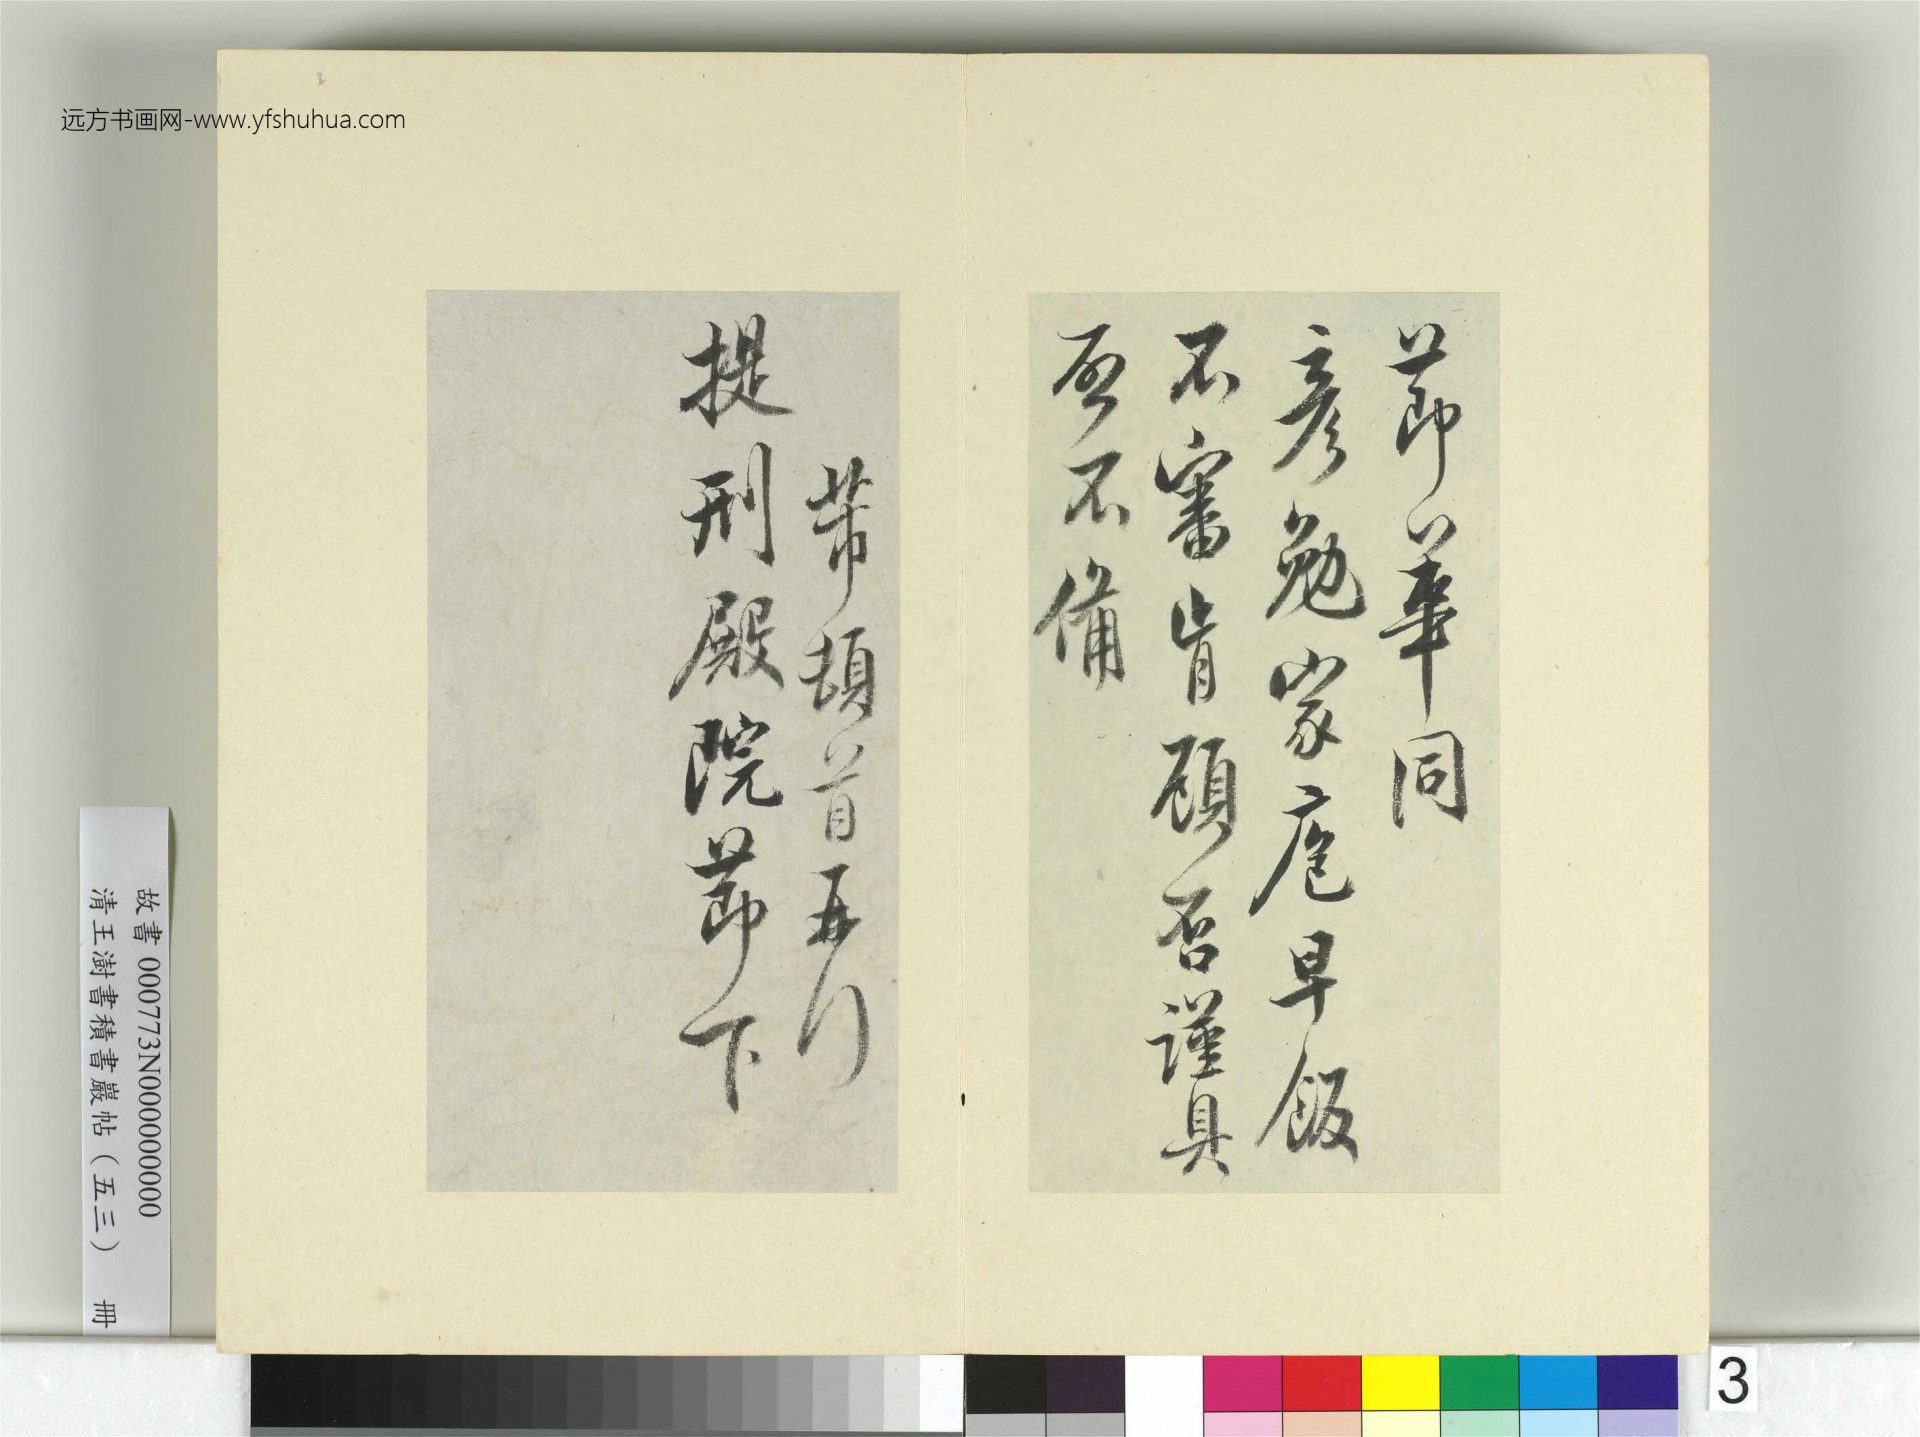 远方书画网-www.yfshuhua.com
節華同
彥勉家庖早飯
不審肯顧否謹具
啓不備
芾頓首再行
提刑殿院節下
故書 000773N000000000
清王澍書積書巖帖(五三) 冊
3